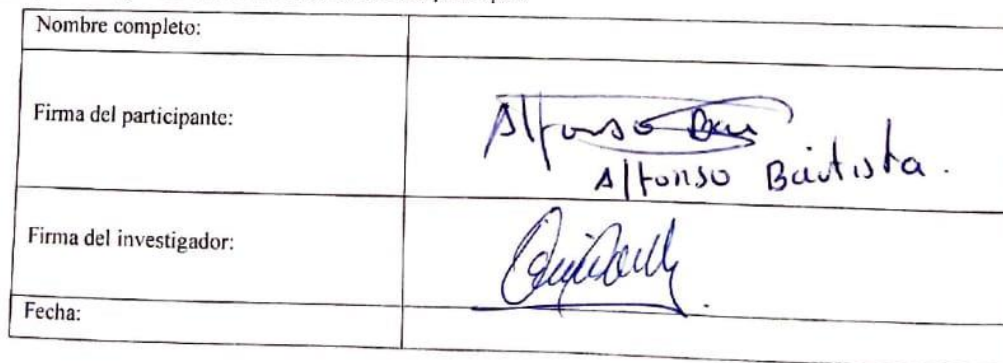 Nombre completo:
Firma del participante:
Alfonso Bau
Alfonso Bautista.
Firma del investigador:
Fecha: